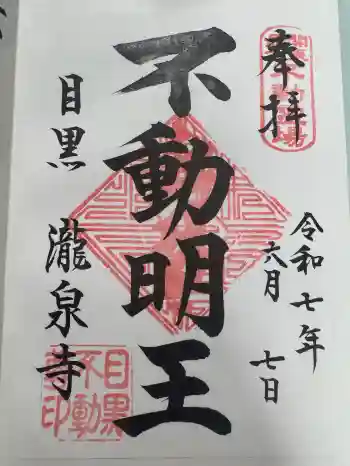 奉拝
令和七年
六月 七日
不動明王
目黒 瀧泉寺
目黒
不動